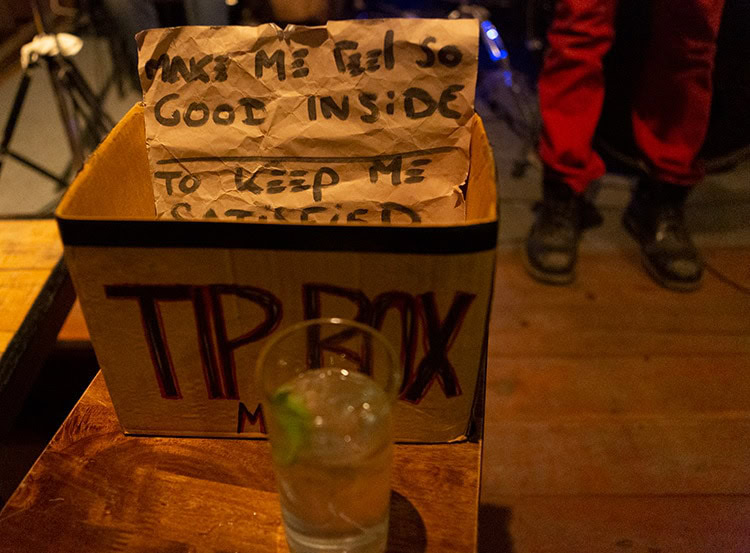 MAKE ME FEEl SO
GOOD INSiDE
TO KEEP ME
SATiSFiED
TIP BOX
M